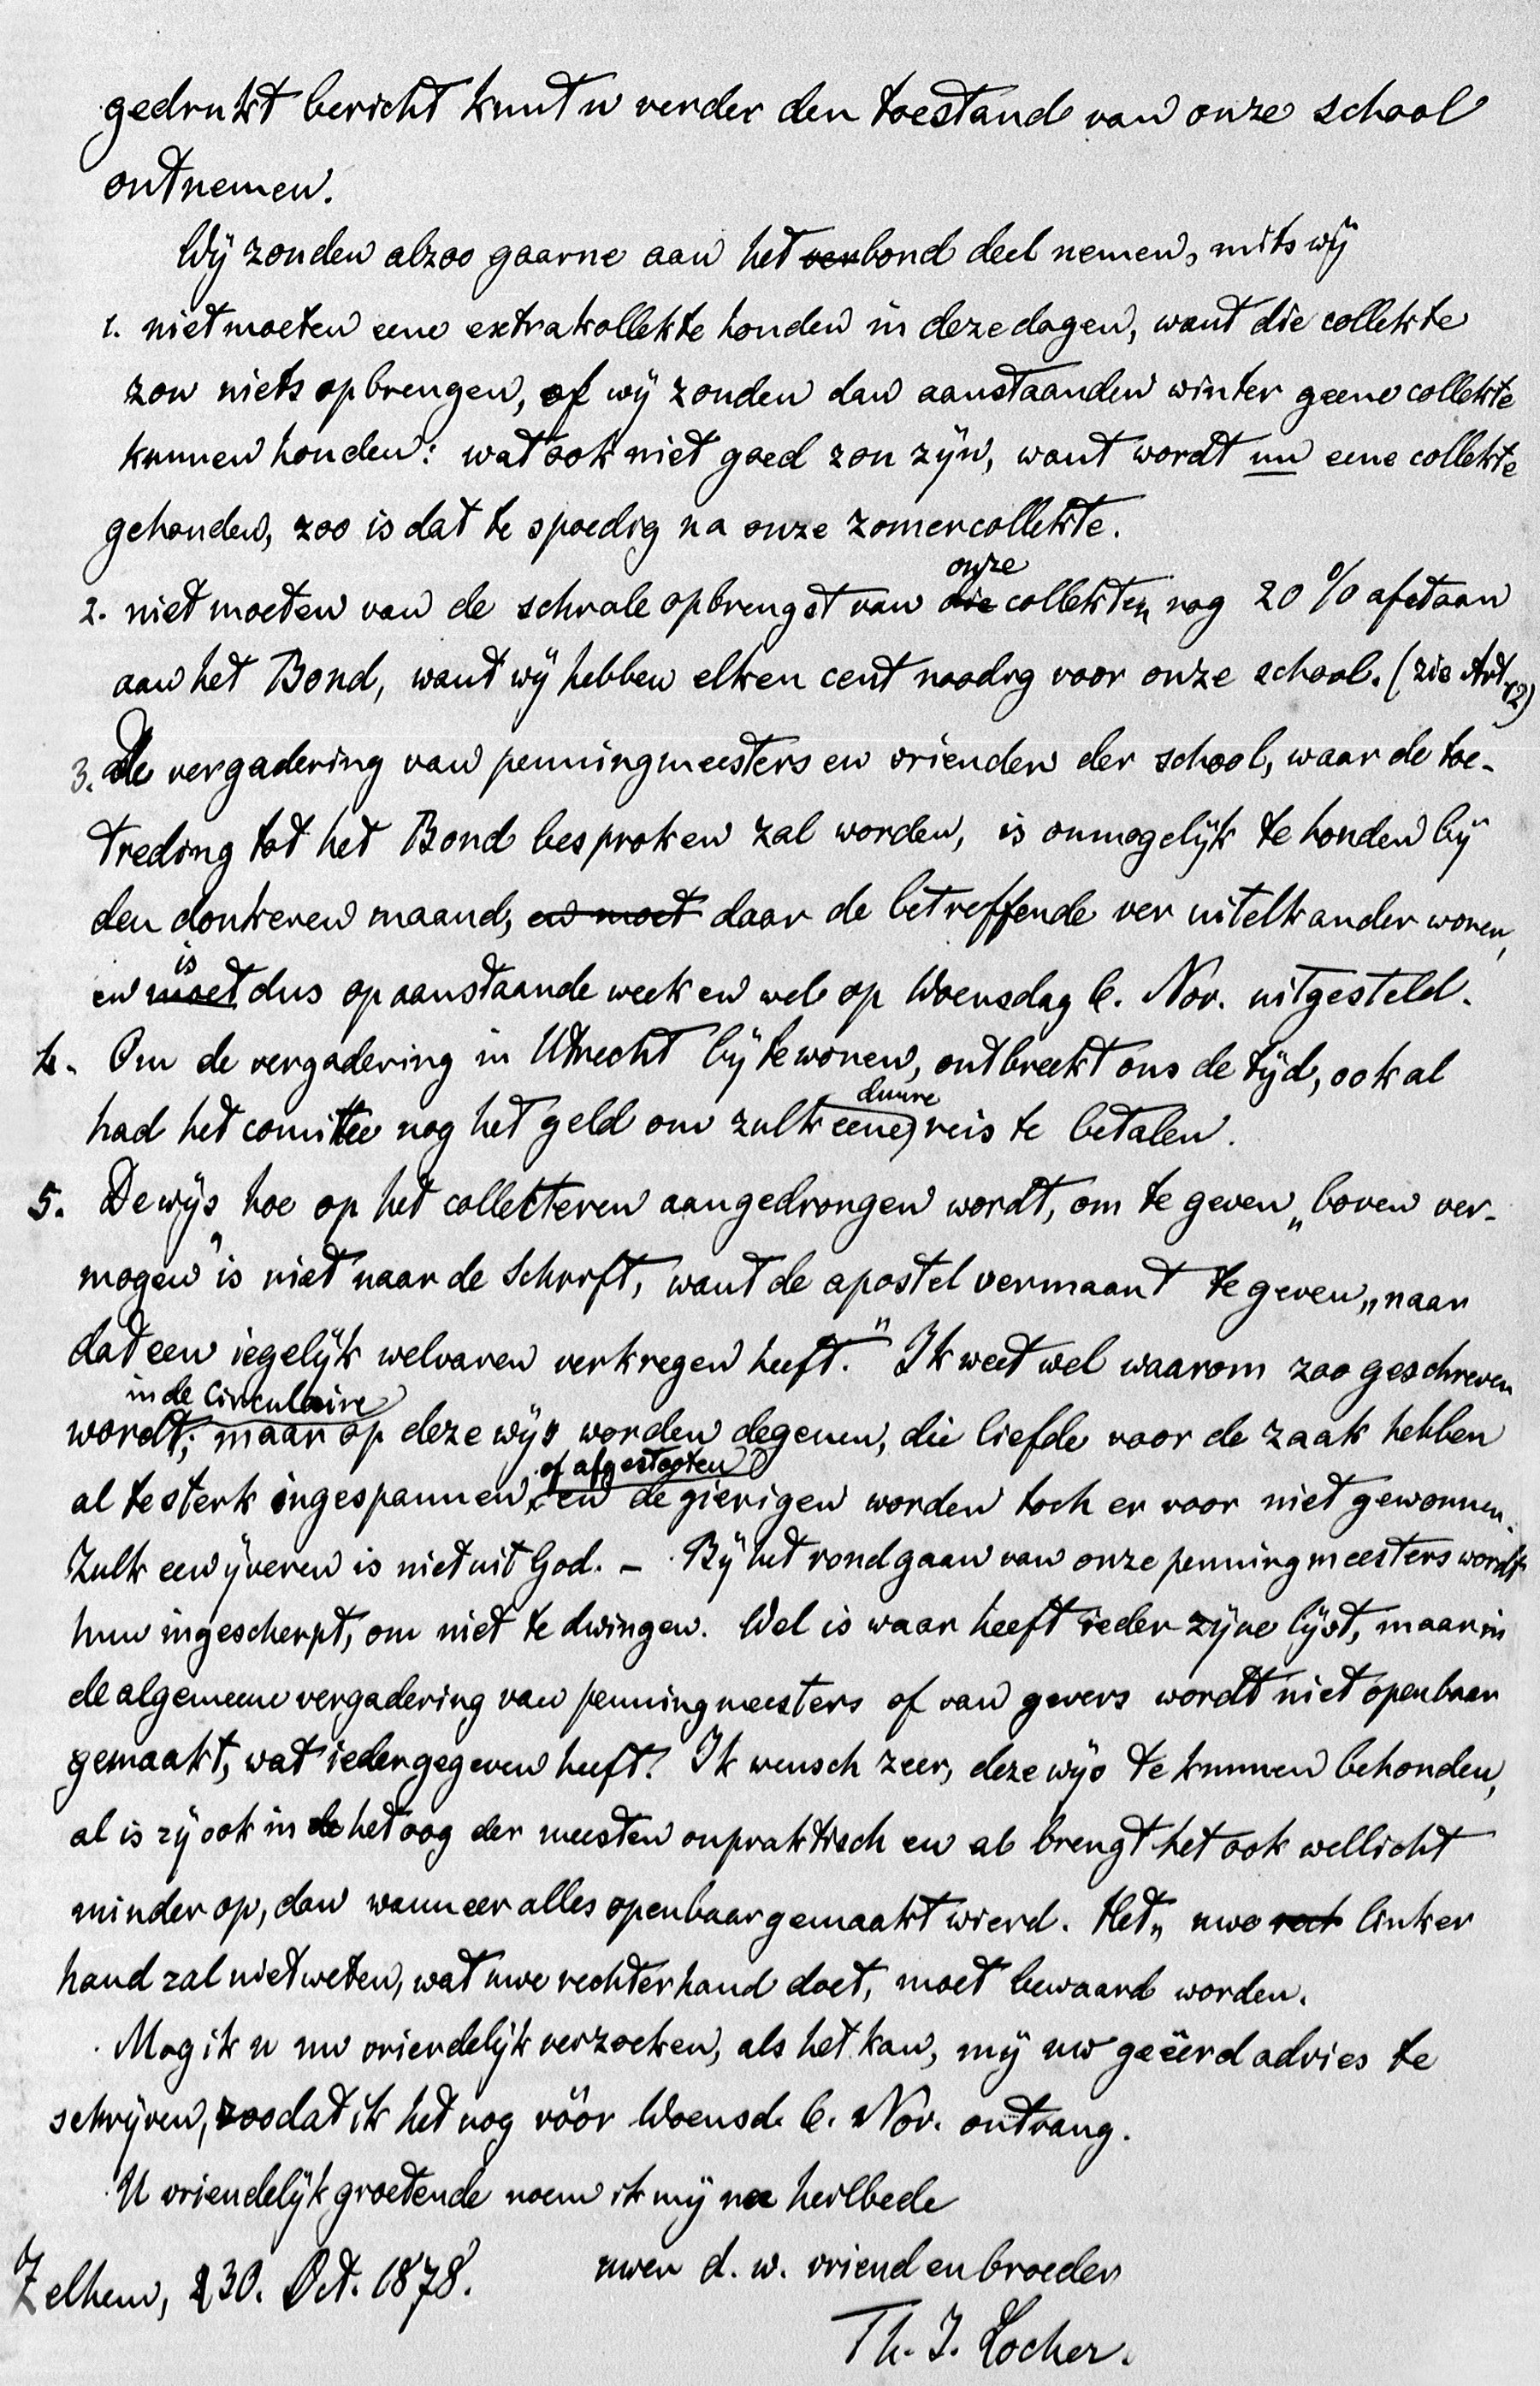 gedrukt bericht kunt u verder den toestand van onze school
ontnemen.
Wij zouden alzoo gaarne aan het verbond deel nemen, mits wij
1. niet moeten eene extrakollekte houden in deze dagen, want die collekte
zou niets opbrengen, of wij zouden dan aanstaanden winter geene collekte
kunnen houden: wat ook niet goed zou zijn, want wordt nu eene collekte
gehouden, zoo is dat te spoedig na onze zomercollekte.
onze
2. niet moeten van de schrale opbrengst van die collekten nog 20 % afstaan
aan het Bond, want wij hebben elken cent noodig voor onze school. (zie Art. 12)
3. De vergadering van penningmeesters en vrienden der school, waar de toe-
treding tot het Bond besproken zal worden, is onmogelijk te houden bij
den donkeren maand, en moet daar de betreffende ver uitelkander wonen,
is
en moet dus op aanstaande week en wel op Woensdag 6. Nov. uitgesteld.
4. Om de vergadering in Utrecht bij te wonen, ontbreekt ons de tijd, ook al
duure
had het comittee nog het geld om zulk eene reis te betalen.
5. De wijs hoe op het collecteren aangedrongen wordt, om te geven „boven ver-
mogen" is niet naar de Schrift, want de apostel vermaant te geven „naar
dat een iegelijk welvaren verkregen heeft." Ik weet wel waarom zoo geschreven
in de Circulaire
wordt; maar op deze wijs worden degenen, die liefde voor de zaak hebben
of afgestooten
al te sterk ingespannen, en de gierigen worden toch er voor niet gewonnen.
Zulk een ijveren is niet uit God. – Bij het rondgaan van onze penningmeesters wordt
hun ingescherpt, om niet te dwingen. Wel is waar heeft ieder zijne lijst, maar in
de algemeene vergadering van penningmeesters of van gevers wordt niet openbaar
gemaakt, wat ieder gegeven heeft. Ik wensch zeer, deze wijs te kunnen behouden,
al is zij ook in de het oog der meesten onpraktisch en al brengt het ook wellicht
minder op, dan wanneer alles openbaar gemaakt wierd. Het „ uwe rech linker
hand zal niet weten, wat uwe rechterhand doet, moet bewaard worden.
Mag ik u nu vriendelijk verzoeken, als het kan, mij uw geëerd advies te
schrijven, zoodat ik het nog vóór Woensd. 6. Nov. ontvang.
U vriendelijk groetende noem ik mij na heilbede
uwen d. w. vriend en broeder
Zelhem, 30. Oct. 1878.
Th. J. Locher.